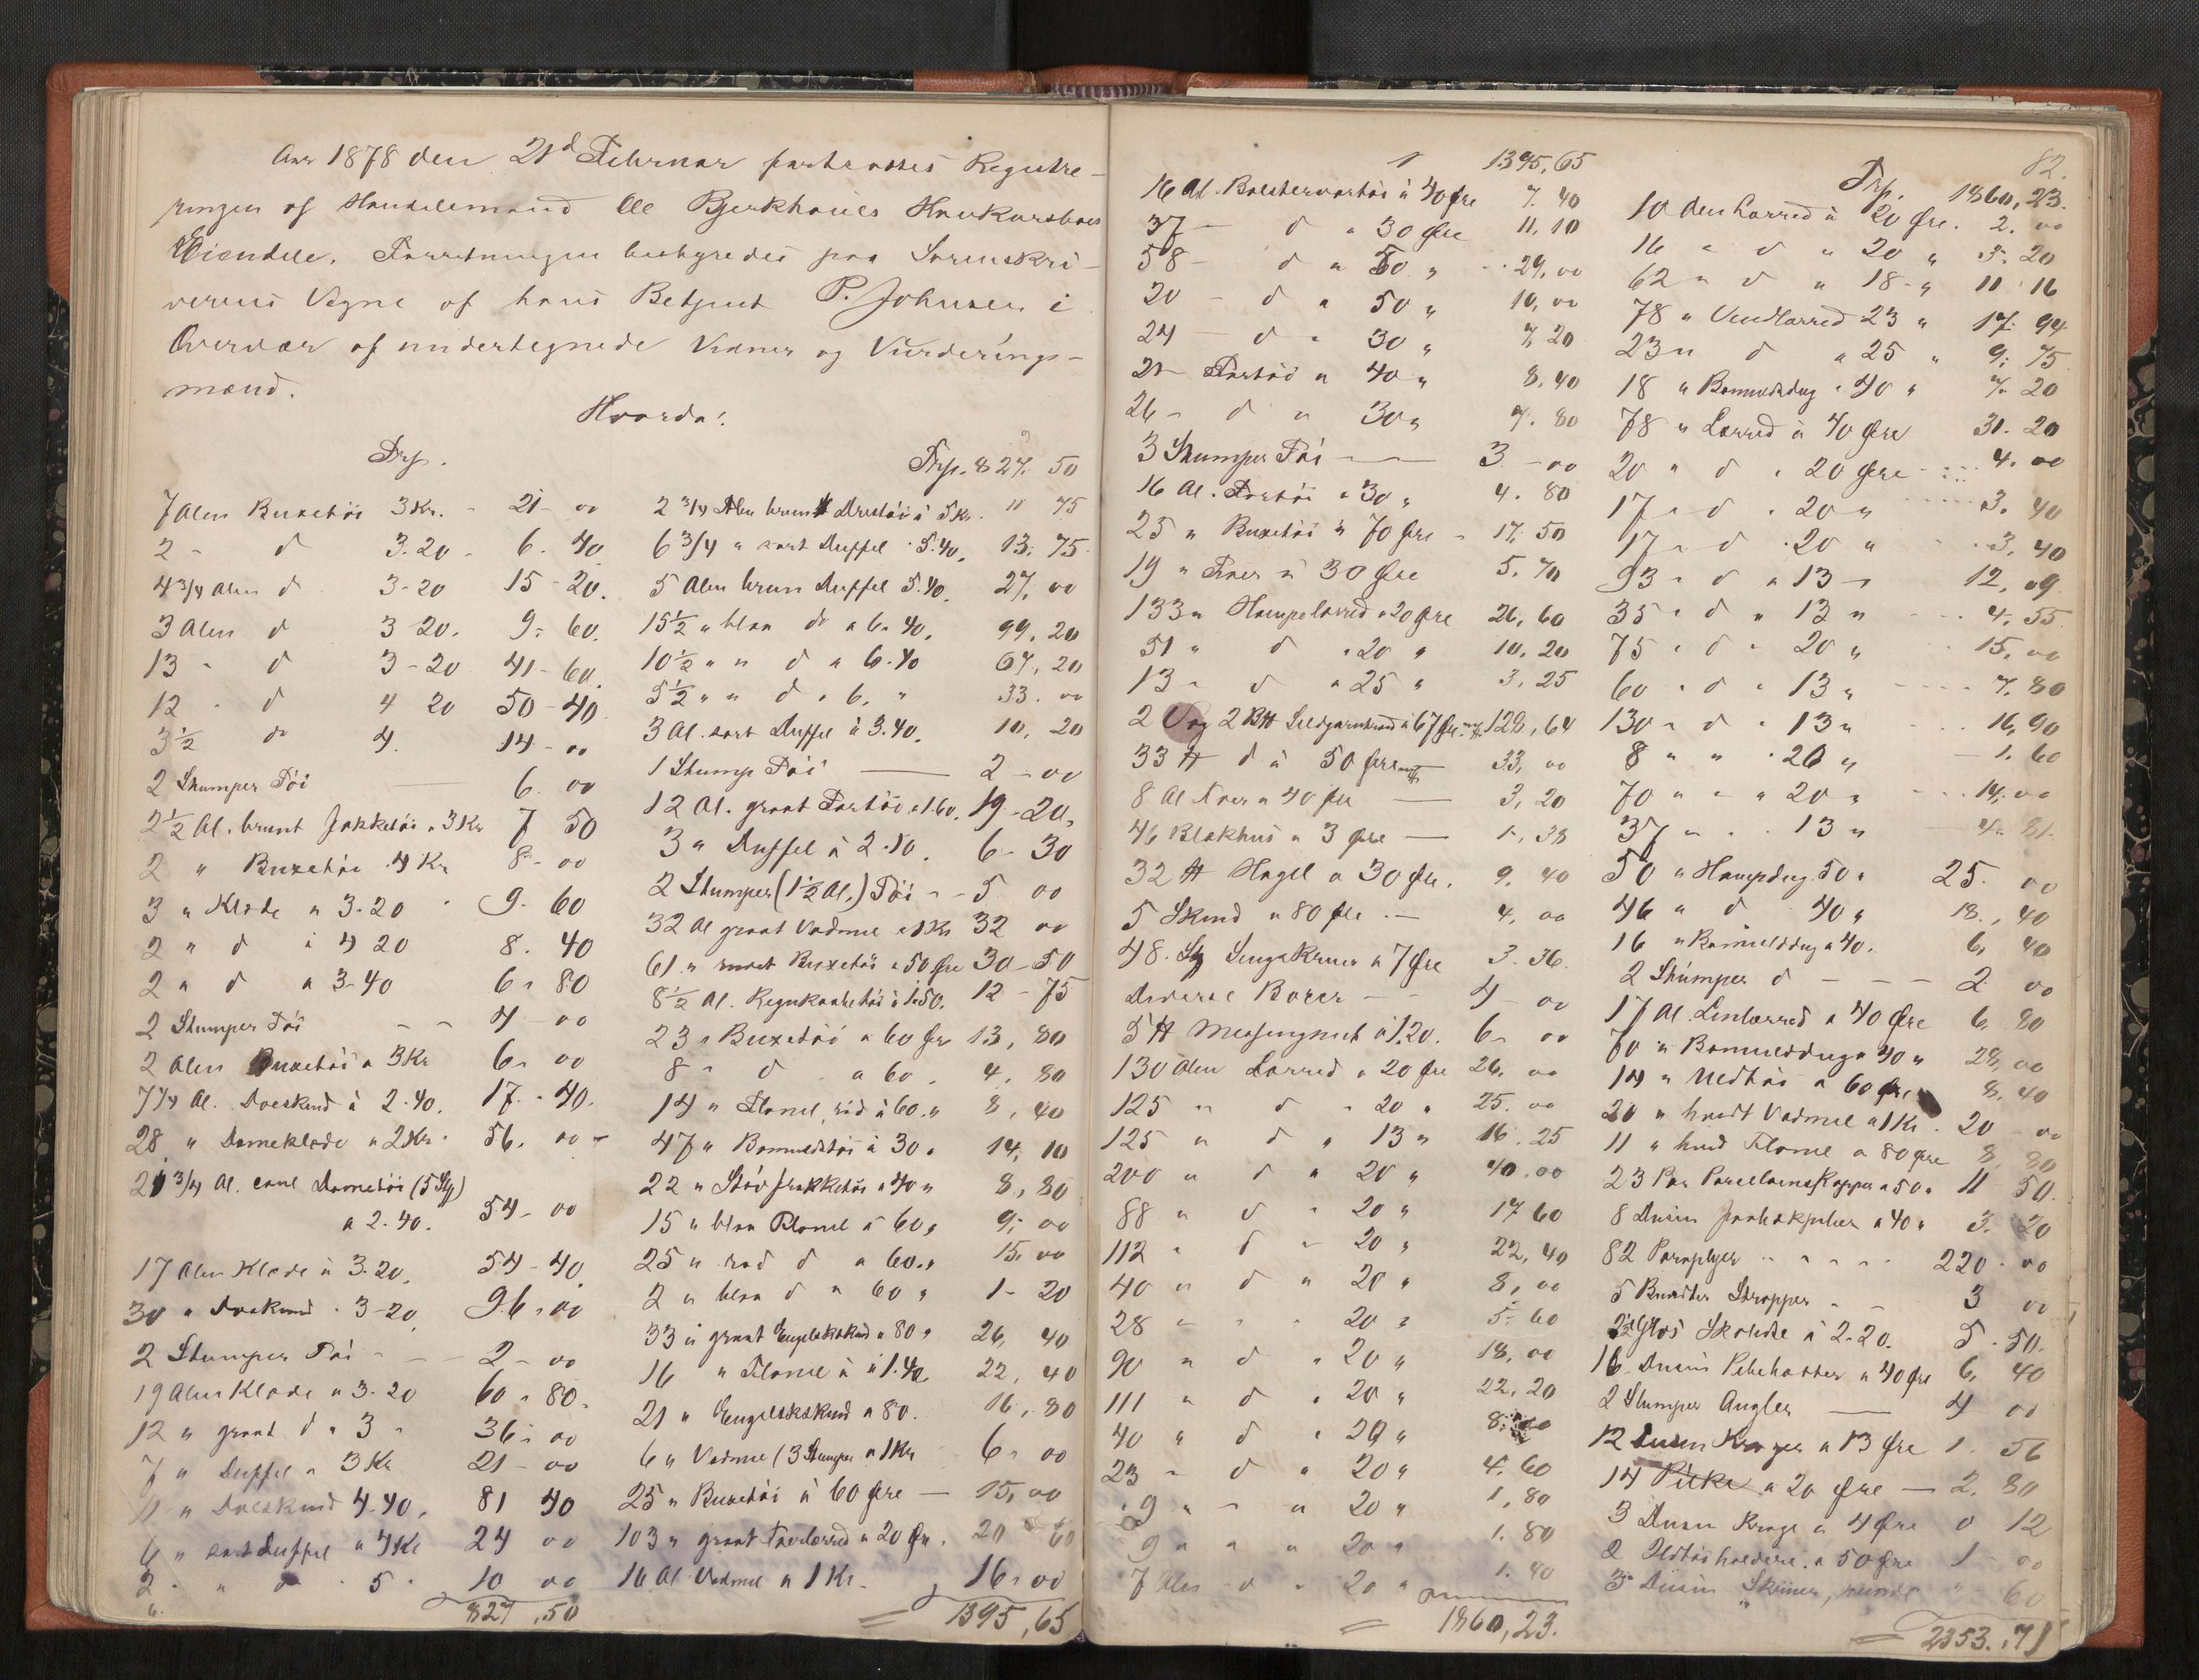 Aar 1878 den 21d Februar fortsattes Registre-
ringen af Handelsmand Ole Bjerkhoels Konkursboes
Eiendele. Forretningen bestyredes paa Sorenskri-
verens Vegne af hans Betjent P. Johnsen i
Overvær af undertegnede Vidner og Vurderings-
mænd.
Hvorda:
Trp.
7 Alen Buxetøi 3 Kr. - 21 - 00
2 - d 3.20 - 6. 40
4 3/4 Alen d 3-20 15 - 20.
3 Alen d 3 20. 9. 60.
13 - d 3-20 41 - 60.
12 - d 4 20 50 - 40
3 1/2 do 4. 14 - 00
2 Stumper Tøi 6. 00
2 1/2 Al. brunt Jakketøi " 3 Kr 7 50
2 " Buxetøi 4 Kr 8 - 00
3 " Klæde " 3.20 9. 60
2 " d i 4 20 8. 40
2 " d a 3-40 6 " 80
2 Stumper Tøi - - 4 - 00
2 Alen Buxetøi a 3 Kr 6 " 00
7 1/4 Al. Doeskind à 2.40. 17. - 40.
28 " Dameklæde a 2 Kr. 56. 00
21 3/4 Al. Dametøi (5 Stp)
a 2.40. 54 - 00
17 Alen Klæde à 3.20. 54 - 40
30 " Doeskind . 3-20 96 " 00
2 Stumper Tøi - - 2 - 00
19 Alen Klæde a 3.20 60 " 80.
12 " graat d " 3 - 36 " 00
7 " Duffel " 3 Kr 21 - 00
11 " Doeskind 4-40. 81 40
6 " sort Duffel a 4 Kr 24 00
2 " " d . 5 . 10 00
827,50
Trp. 827. 50
2 3/4 Alen brunt à 5 Kr. 11 75
6 3/4 " sort Duffel . 5.40. 13. 75
5 Alen brun Duffel 5.40. 27. 00
15 1/2 " blaa do a 6.40. 99. 20
10 1/2 " " d a 6.40 67. 20
5 1/2 " " d . 6. " 33. 00
3 Al. sort Duffel à 3.40. 10, 20
1 Stump Tøi 2 - 00
12 Al. graat Fortøi a 1.60. 19 - 20.
3 " Duffel à 2.10. 6 - 30
2 Stumper (1 1/2 Al.) Tøi - - 5 00
32 Al graat Vadmel a 1 Kr 32 00
61 " Buxetøi a 50 Øre 30 - 50
8 1/2 Al. Regnkaabetøi à 1.50. 12 - 75
23 " Buxetøi a 60 Øre 13, 80
8 " d a 60 . 4. 80
14 " Flonel, rød à 60 " 8, 40
47 " Bomuldstøi à 30 " 14, 10
22 " Jakketøi a 40 " 8, 80
15 " blaa Flonel à 60 " 9, 00
25 " rød d a 60 " 15, 00
2 " blaa d a 60 " 1 - 20
33 " graat Engelskskind a 80 " 26, 40
16 " Flonel à 1.40. 22, 40
21 " Engelskskind a 80. 16, 80
6 " Vadmel (3 Stumper a 1 Kr 6 " 00
25 " Buxetøi à 60 Øre — 15, 00
103 " graat Foerlærred a 20 Ør. 20 60
16 Al Vadmel a 1 Kr. 16 " 00
= 1395,65
1395,65
16 Al. Bolstervartøi à 40 Øre 7. 40
37 - d " 30 Øre 11, 10
58 - d " 50 " 29, 00
20 - d " 50 " 10, 00
24 d " 30 " 7, 20
21 - Fortøi a 40 " 8, 40
26 - d a 30 " 7. 80
3 Stumper Tøi — 3 - 00
16 Al. Fortøi " 30 " 4. 80
25 " Buxetøi à 70 Øre - 17, 50
19 " Foer à 30 Øre 5. 70
133 " Hampelærred a 20 Øre 26, 60
51 " d " 20 " 10, 20
13 " d a 25 " 3, 25
2 Vog 2 B℔ Sildgarntraad à 67 Øre 128, 64
33 ℔ d à 50 Øre 33, 00
8 Al Foer a 40 Øre — 3, 20
46 Blækhus a 3 Øre — 1. 38
32 ℔ Hagel a 30 Øre. 9. 40
5 Skind a 80 Øre — 4, 00
48. Stk Sengekruer à 7 Øre 3. 36.
Diverse Borer - - 4 - 00
5 ℔ Messingnet à 1.20. 6 " 00
130 Alen Lærred a 20 Øre 26. 00
125 " d " 20 " 25. 00
125 " d " 13 " 16. 25
200 " d " 20 " 40.00
88 " d " 20 " 17 60
112 " d " 20 " 22, 40
40 " d " 20 " 8, 00
28 " " 20 " 5. 60
90 " d " 20 " 18, 00
111 " d " 20 " 22, 20
40 " d " 20 " 8, 00
23 " d " 20 " 4. 60
9 " - " 20 " 1, 80
9 " " " 20 " 1. 80
7 Alen d " 20 " 1. 40
= 1860,23.
82.
Trp. 1860,23.
10 Alen Lærred à 20 Øre. 2. 00
16 " d " 20 " 3. 20
62 " d " 18 " 11 16
78 " 23 " 17. 94
23 " d " 25 " 9. 75
18 " Bomuldsdug " 40 " 7. 20
78 " Lærred à 40 Øre 31. 20
20 " d . 20 Øre 4. 00
17 " d . 20 " 3. 40
17 " d . 20 " 3, 40
93 " d " 13 " 12, 09
35 " d " 13 " 4. 55
75 " d " 20 " 15, 00
60 " d " 13 " 7. 80
130 " d " 13 " 16, 90
8 " " . 20 " 1. 60
70 " " " 20 " 14, 00
37 " . . 13 " 4. 81.
50 " Hampdug. 50 " 25. 00
46 " d 40 " 18., 40
16 " Bomulddug a 40. 6, 40
2 Stumper d - - - 2. 00
17 Al. Linlærred a 40 Øre 6, 80
70 " Bomulddug a 40 " 28, 00
14 " Uldtøi a 60 Øre 8. 40
20 " hvidt Vadmel a 1 Kr. 20 - 00
11 " hvid Flonel a 80 Øre 8, 80
23 Par Porcellainskopper a 50 " 11 50.
8 Dusin a 40 " 3. 20
82 Paraplyer 220 - 00
5 Bundter Stropper - - 3 00
à 2.20. 5. 50.
16 Dusin a 40 Øre 6, 40
2 Stumper Angler — 4 00
12 Dusin a 13 Øre 1. 56
14 Pilke a 20 Øre — 2. 80
3 Dusin Kroge a 4 Øre 0 12
2 a 50 Øre 1 - 00
3 Dusin Skruer, runde " 60
= 2353.,71